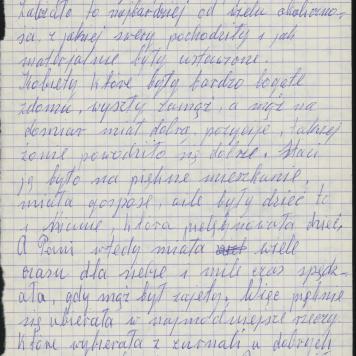 zależało to najbardziej od wielu okoliczno-
sci, z jakiej sfery pochodziły i jak
materjalnie były ustawione.
Kobiety które były bardzo bogate
z domu, wyszły zamąż, a mąż na
domiar miał dobrą pozycję, takiej
żonie powodziło się dobrze. Stać
ją było na piękne mieszkanie,
miała gosposę, a ile były dzieć to
i Nianie, która pielęgnowała dzieć,
A Pani wtedy miała wiele
czasu dla siebie i mile czas spędz-
ała, gdy mąż był zajęty. Więc pięknie
się ubierała w najmodniejsze rzeczy
które wybierała z żurnali u dobrych